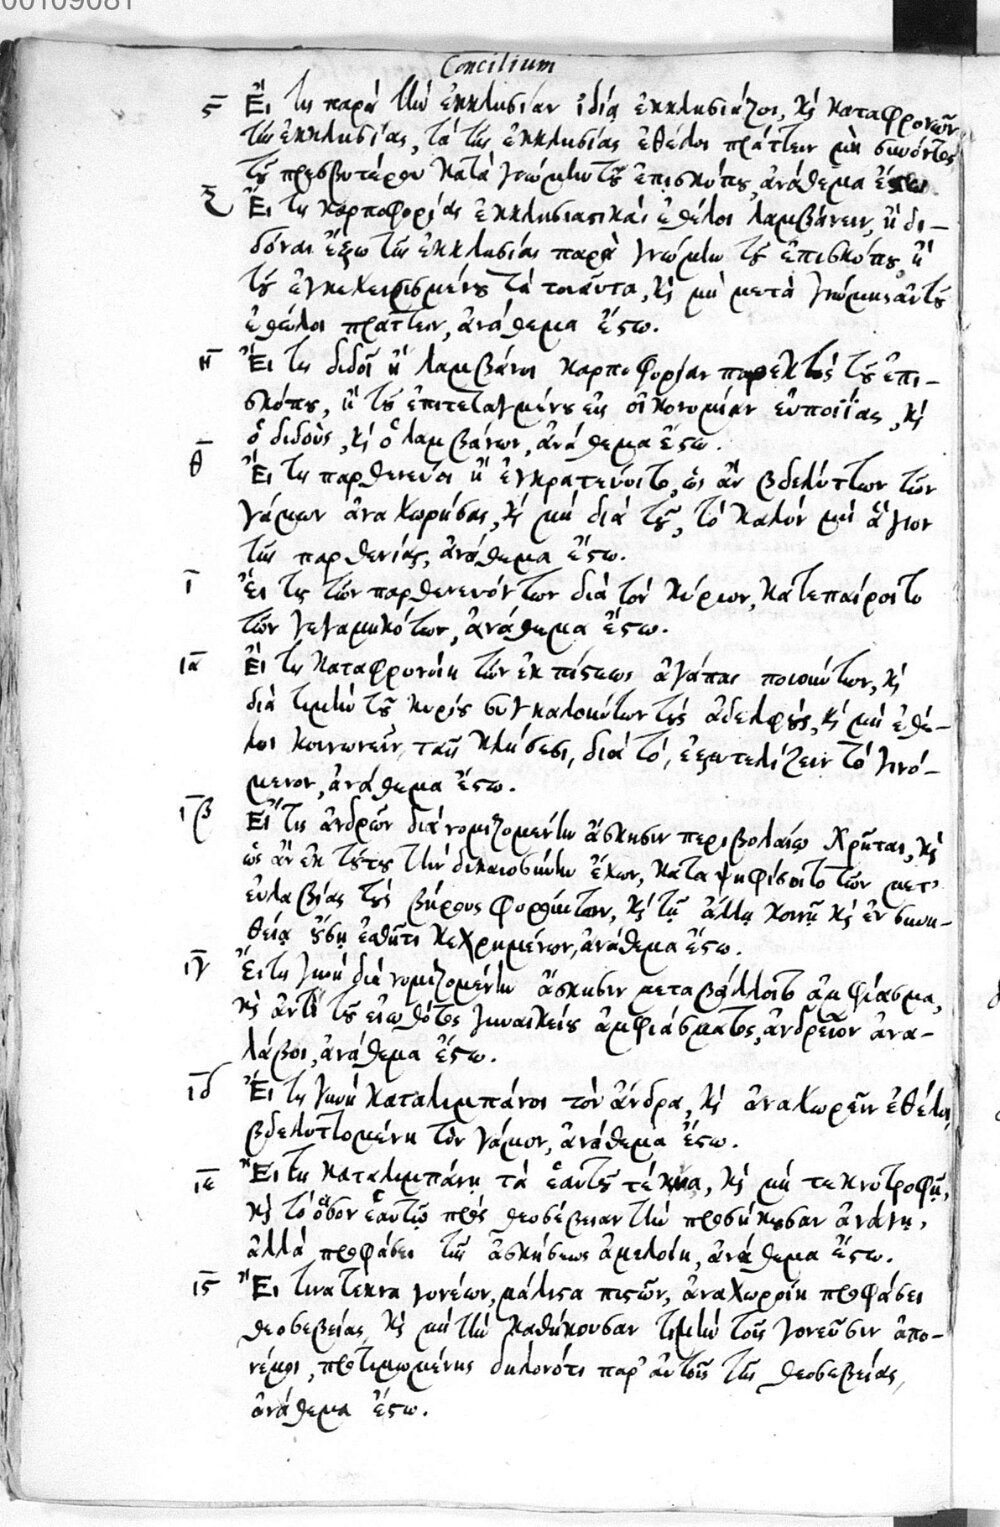 00109081
Concilium
ϛ Εἴ τις παρὰ τὴν ἐκκλησίαν ἰδίᾳ ἐκκλησιάζοι, κỳ καταφρονῶν
τῆς ἐκκλησίας, τὰ τῆς ἐκκλησίας ἐθέλοι πράττειν μὴ συνόντος
τοῦ πρεσβυτέρου κατὰ γνώμην τοῦ ἐπισκόπου, ἀνάθεμα ἔστω.
ζ Εἴ τις καρποφορίας ἐκκλησιαστικὰς ἐθέλοι λαμβάνειν, ἢ δι-
δόναι ἔξω τῆς ἐκκλησίας παρὰ γνώμην τοῦ ἐπισκόπου, ἢ
τοῦ ἐγκεχειρισμένου τὰ τοιαῦτα, καὶ μὴ μετὰ γνώμης αὐτοῦ
ἐθέλοι πράττειν, ἀνάθεμα ἔστω.
η Εἴ τις διδοῖ ἢ λαμβάνοι καρποφορίαν παρεκτὸς τοῦ ἐπι-
σκόπου, ἢ τοῦ ἐπιτεταγμένου εἰς οἰκονομίαν εὐποιΐας, καὶ
ὁ διδοὺς, καὶ ὁ λαμβάνων, ἀνάθεμα ἔστω.
θ Εἴ τις παρθενεύοι ἢ ἐγκρατεύοιτο, ὡς ἂν βδελύττων τῶν
γάμων ἀναχωρήσας, καὶ μὴ διὰ τοῦ, τὸ καλὸν μὴ ἅγιον
τῆς παρθενίας, ἀνάθεμα ἔστω.
ι Εἴ τις τῶν παρθενευόντων διὰ τὸν κύριον, κατεπαίροιτο
τῶν γεγαμηκότων, ἀνάθεμα ἔστω.
ια Εἴ τις καταφρονοίη τῶν ἐκ πίστεως ἀγάπας ποιούντων, καὶ
διὰ τιμὴν τοῦ κυρίου συγκαλούντων τοὺς ἀδελφοὺς, καὶ μὴ ἐθέ-
λοι κοινωνεῖν, ταῖς κλήσεσι, διὰ τὸ, ἐξευτελίζειν τὸ γινό-
μενον, ἀνάθεμα ἔστω.
ιβ Εἴ τις ἀνδρῶν διὰ νομιζομένην ἄσκησιν περιβολαίῳ χρῆται, καὶ
ὡς ἂν ἐκ τούτου τὴν δικαιοσύνην ἔχων, καταψηφίσοιτο τῶν μετ'
εὐλαβείας τοὺς βήρους φορούντων, καὶ τῇ ἄλλῃ κοινῇ καὶ ἐν συνη-
θείᾳ οὔσῃ ἐσθῆτι κεχρημένων, ἀνάθεμα ἔστω.
ιγ Εἴ τις γυνὴ διὰ νομιζομένην ἄσκησιν μεταβάλλοιτο ἀμφίασμα,
καὶ ἀντὶ τοῦ εἰωθότος γυναικείου ἀμφιάσματος, ἀνδρεῖον ἀνα-
λάβοι, ἀνάθεμα ἔστω.
ιδ Εἴ τις γυνὴ καταλιμπάνοι τὸν ἄνδρα, καὶ ἀναχωρεῖν ἐθέλοι,
βδελυττομένη τὸν γάμον, ἀνάθεμα ἔστω.
ιε Εἴ τις καταλιμπάνῃ τὰ ἑαυτοῦ τέκνα, καὶ μὴ τεκνοτροφῇ,
καὶ τὸ ὅσον ἑαυτῷ πρὸς θεοσέβειαν τὴν προσήκουσαν ἀνάγῃ,
ἀλλὰ προφάσει τῆς ἀσκήσεως ἀμελοίη, ἀνάθεμα ἔστω.
ιϛ Εἴ τινα τέκνα γονέων, μάλιστα πιστῶν, ἀναχωροίη προφάσει
θεοσεβείας, καὶ μὴ τὴν καθήκουσαν τιμὴν τοῖς γονεῦσιν ἀπο-
νέμοι, προτιμωμένης δηλονότι παρ' αὐτοῖς τῆς θεοσεβείας,
ἀνάθεμα ἔστω.